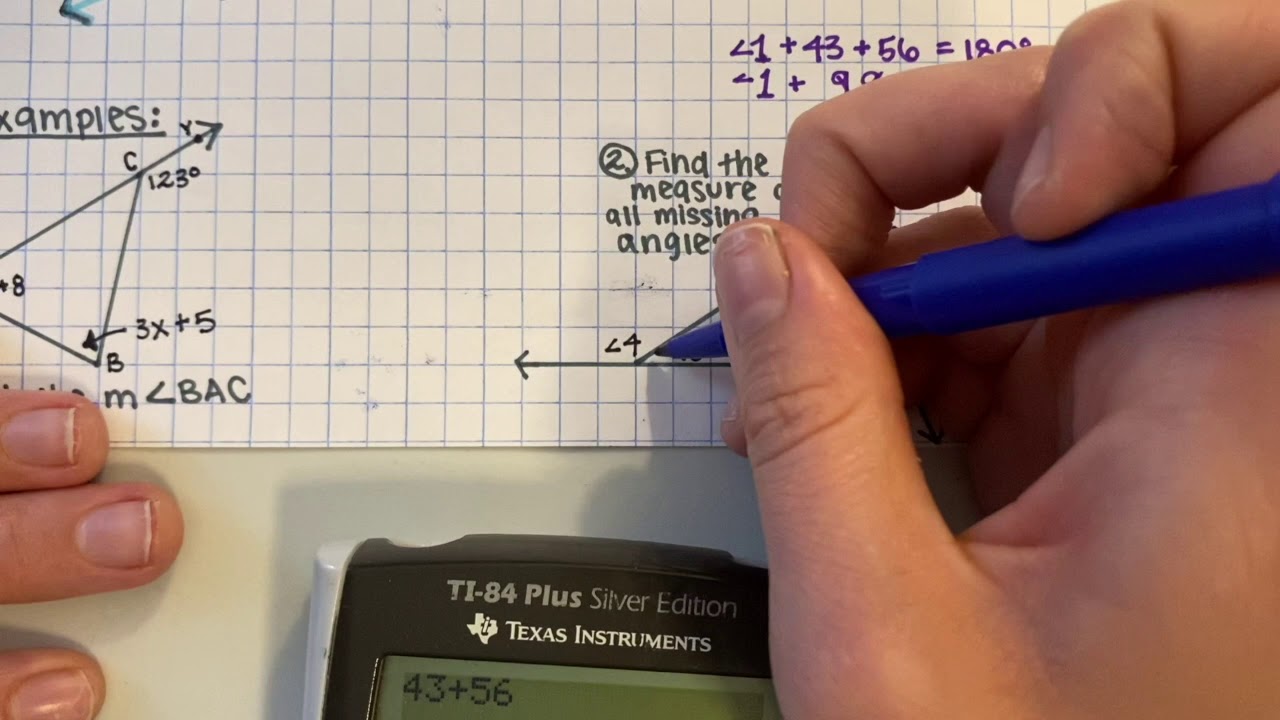 ∠1 + 43 + 56 = 180°
∠1 +
xamples:
Y
C
123°
+8
3x+5
B
m∠BAC
② Find the
measure
all missing
angles
∠4
TI-84 Plus Silver Edition
TEXAS INSTRUMENTS
43+56